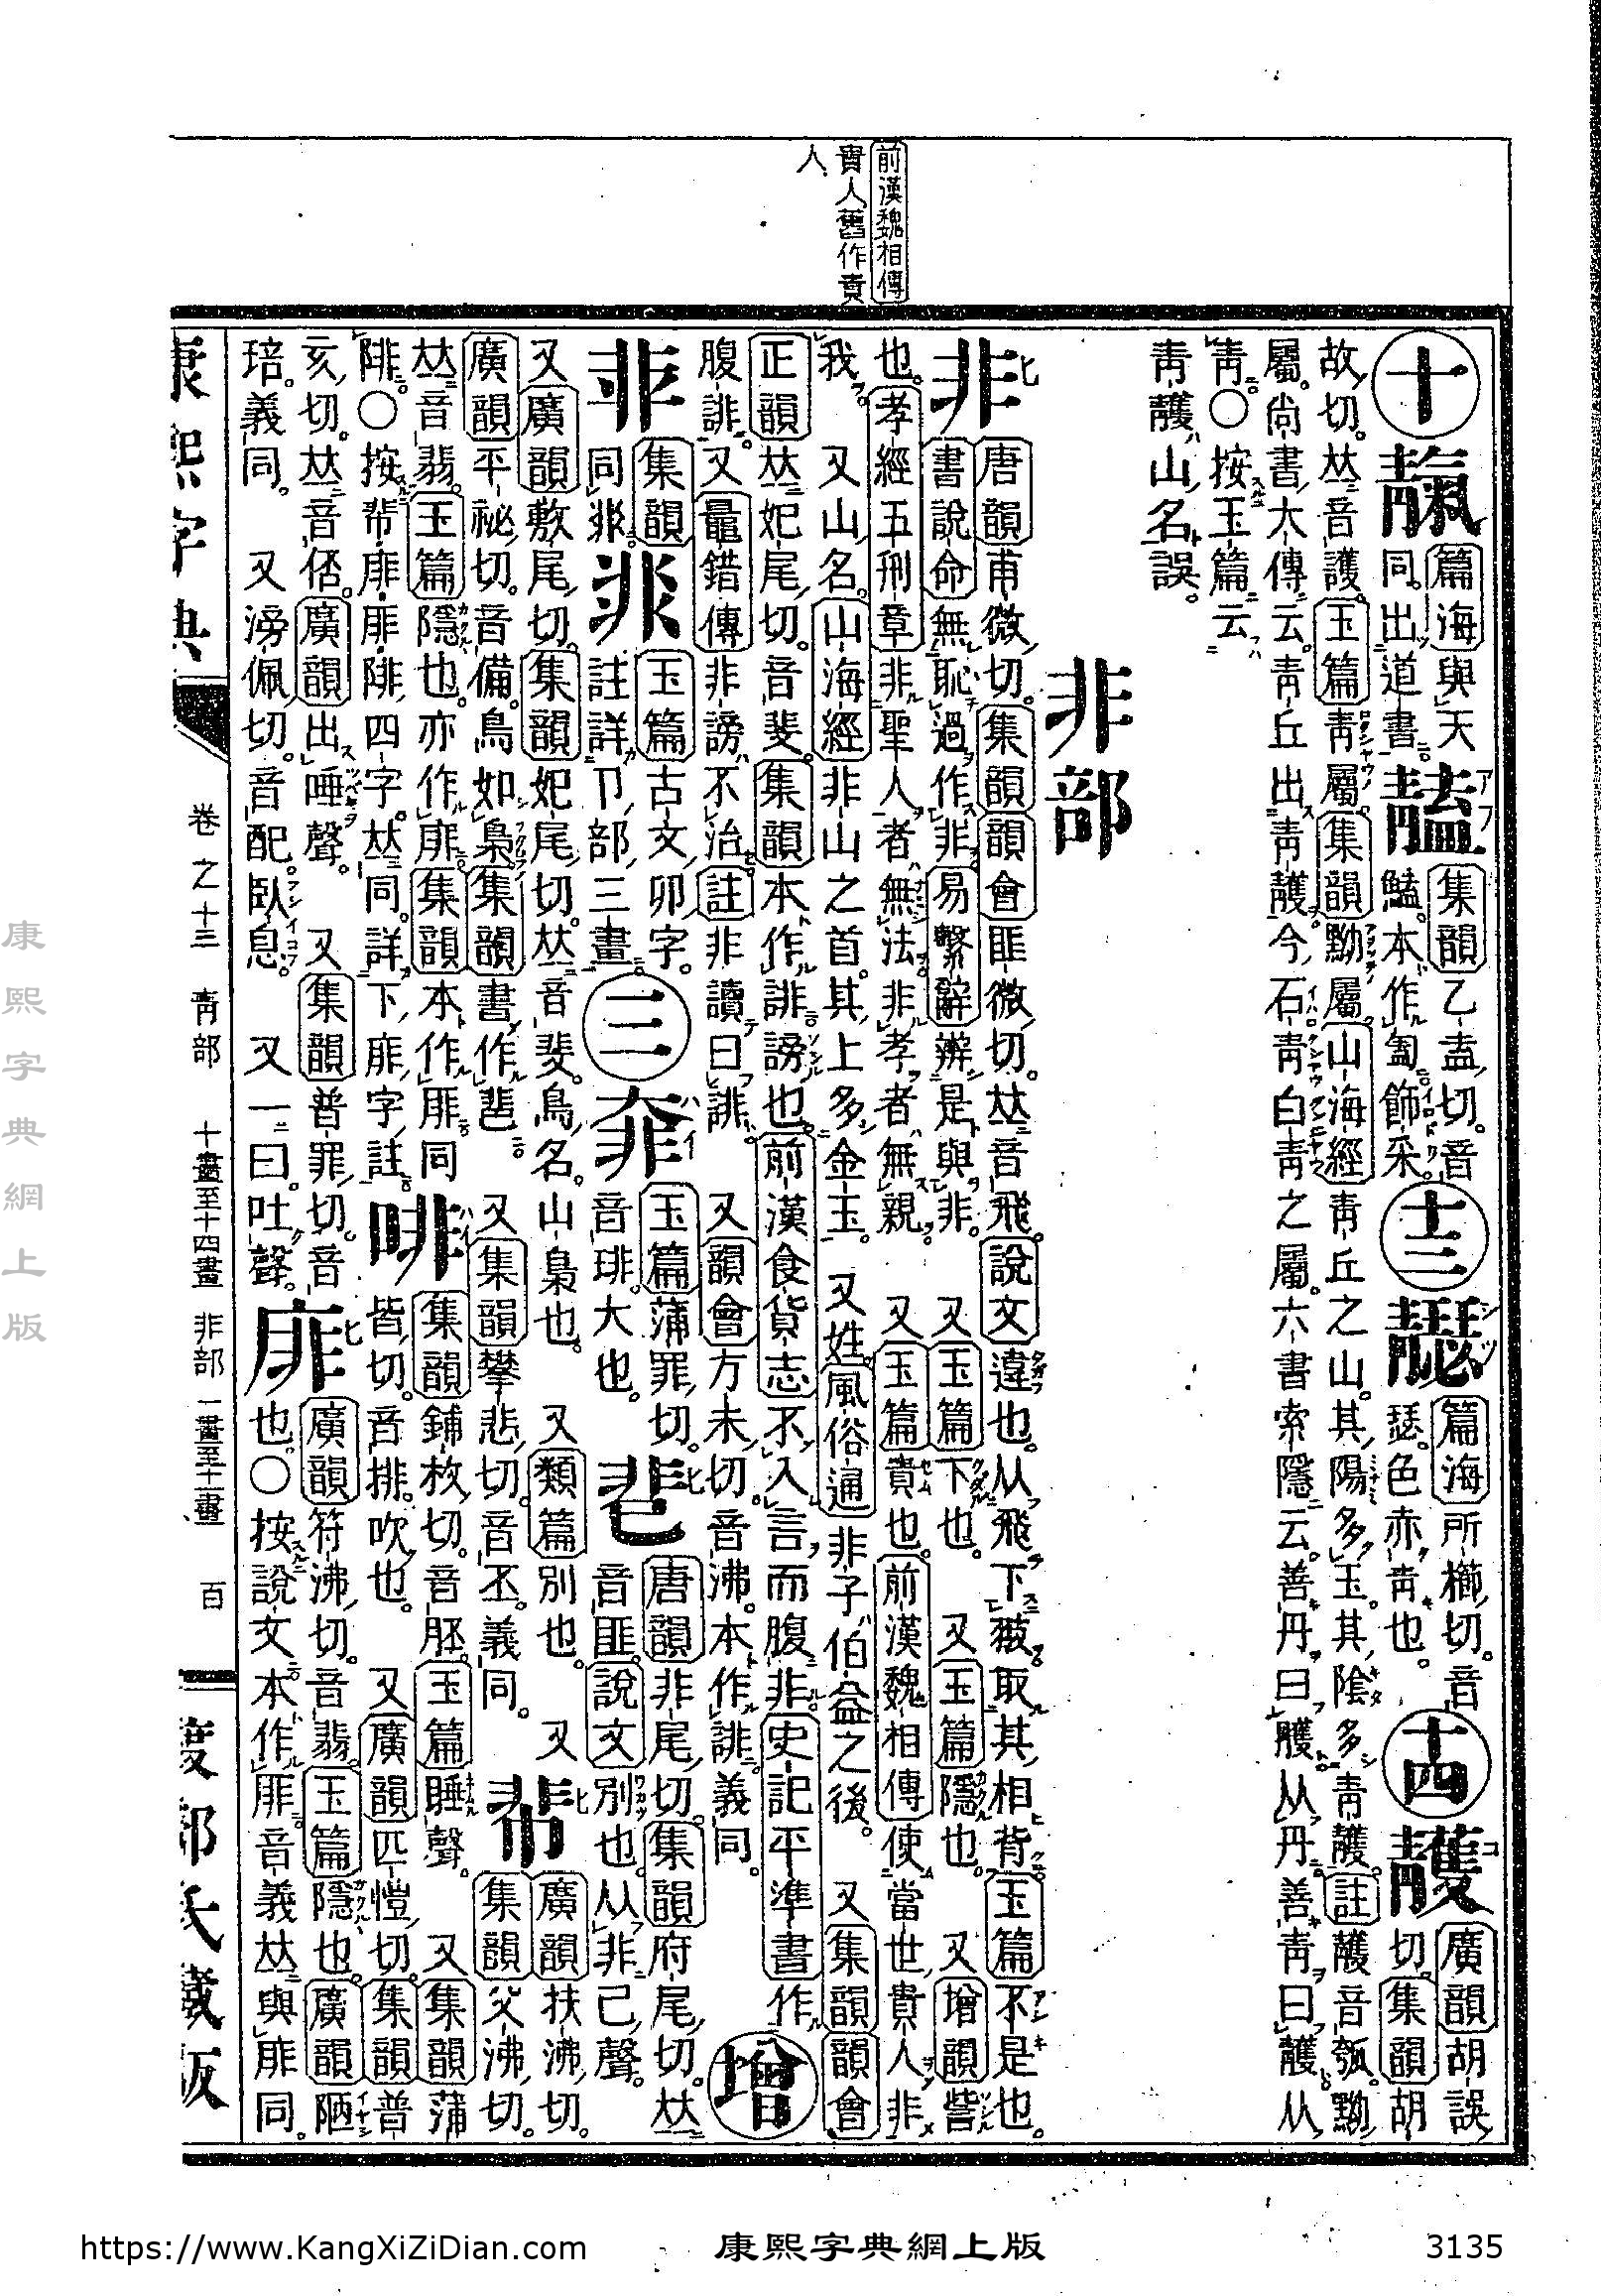 前漢魏相傳
貴人舊作責
人
十 靝 篇海與天同。出道書。 集韻乙盍切。音鰪。本作匎。飾采。 十三 篇海所櫛切。音瑟。色赤靑也。 十四 廣韻胡誤切。集韻胡
故切。𠀤音護。玉篇靑屬。集韻黝屬。山海經靑丘之山。其陽多玉。其陰多靑。註音瓠。黝
屬。尚書大傳云。靑丘出靑。今石靑白靑之屬。六書索隱云。善丹曰雘。从丹。善靑曰。从
靑。○按玉篇云
靑山名誤。
非部
非 唐韻甫微切。集韻韻會匪微切。𠀤音飛。說文違也。从飛下翄。取其相背。玉篇不是也。
書說命無恥過作非。易繫辭辨是與非。 又玉篇下也。 又玉篇隱也。 又增韻訾
也。孝經五刑章非聖人者無法。非孝者無親。 又玉篇責也。前漢魏相傳使當世貴人非
我。 又山名。山海經非山之首。其上多金玉。 又姓。風俗通非子伯益之後。 又集韻韻會
正韻𠀤妃尾切。音斐。集韻本作誹。謗也。前漢食貨志不入言而腹非。史記平準書作
腹誹。又鼂錯傳非謗不治。註非讀曰誹。 又韻會方未切。音沸。本作誹。義同。 增
集韻同𠨘。 玉篇古文卯字。註詳卩部三畫。 三 玉篇蒲罪切。音琲。大也。 唐韻非尾切。集韻府尾切。𠀤音匪。說文別也。从非己聲。
又廣韻敷尾切。集韻妃尾切。𠀤音斐。鳥名。山梟也。 又類篇別也。 又
廣韻平祕切。音備。鳥如梟。集韻書作 又集韻攀悲切。音丕。義同。 廣韻扶沸切。集韻父沸切。
𠀤音翡。玉篇隱也。亦作厞。集韻本作𨻃同
𨻃。○按厞四字𠀤同。詳下厞字註。 啡 集韻鋪枚切。音胚。玉篇睡聲。 又集韻蒲
皆切。音排。吹也。 又廣韻匹愷切。集韻普
亥切。𠀤音俖。廣韻出唾聲。 又集韻普罪切。音
琣。義同。 又滂佩切。音配。臥息。 又一曰。吐聲。 厞 廣韻符沸切。音翡。玉篇隱也。廣韻陋
也。○按說文本作音義𠀤與同。
康熙字典 卷之十三 靑部 十畫至十四畫 非部 一畫至十一畫 百 渡部氏藏版
康熙字典網上版
https://www.KangXiZiDian.com 康熙字典網上版 3135